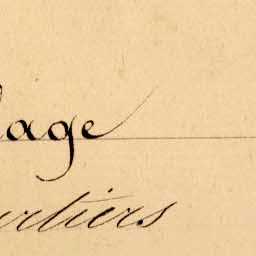 lage
rtiers